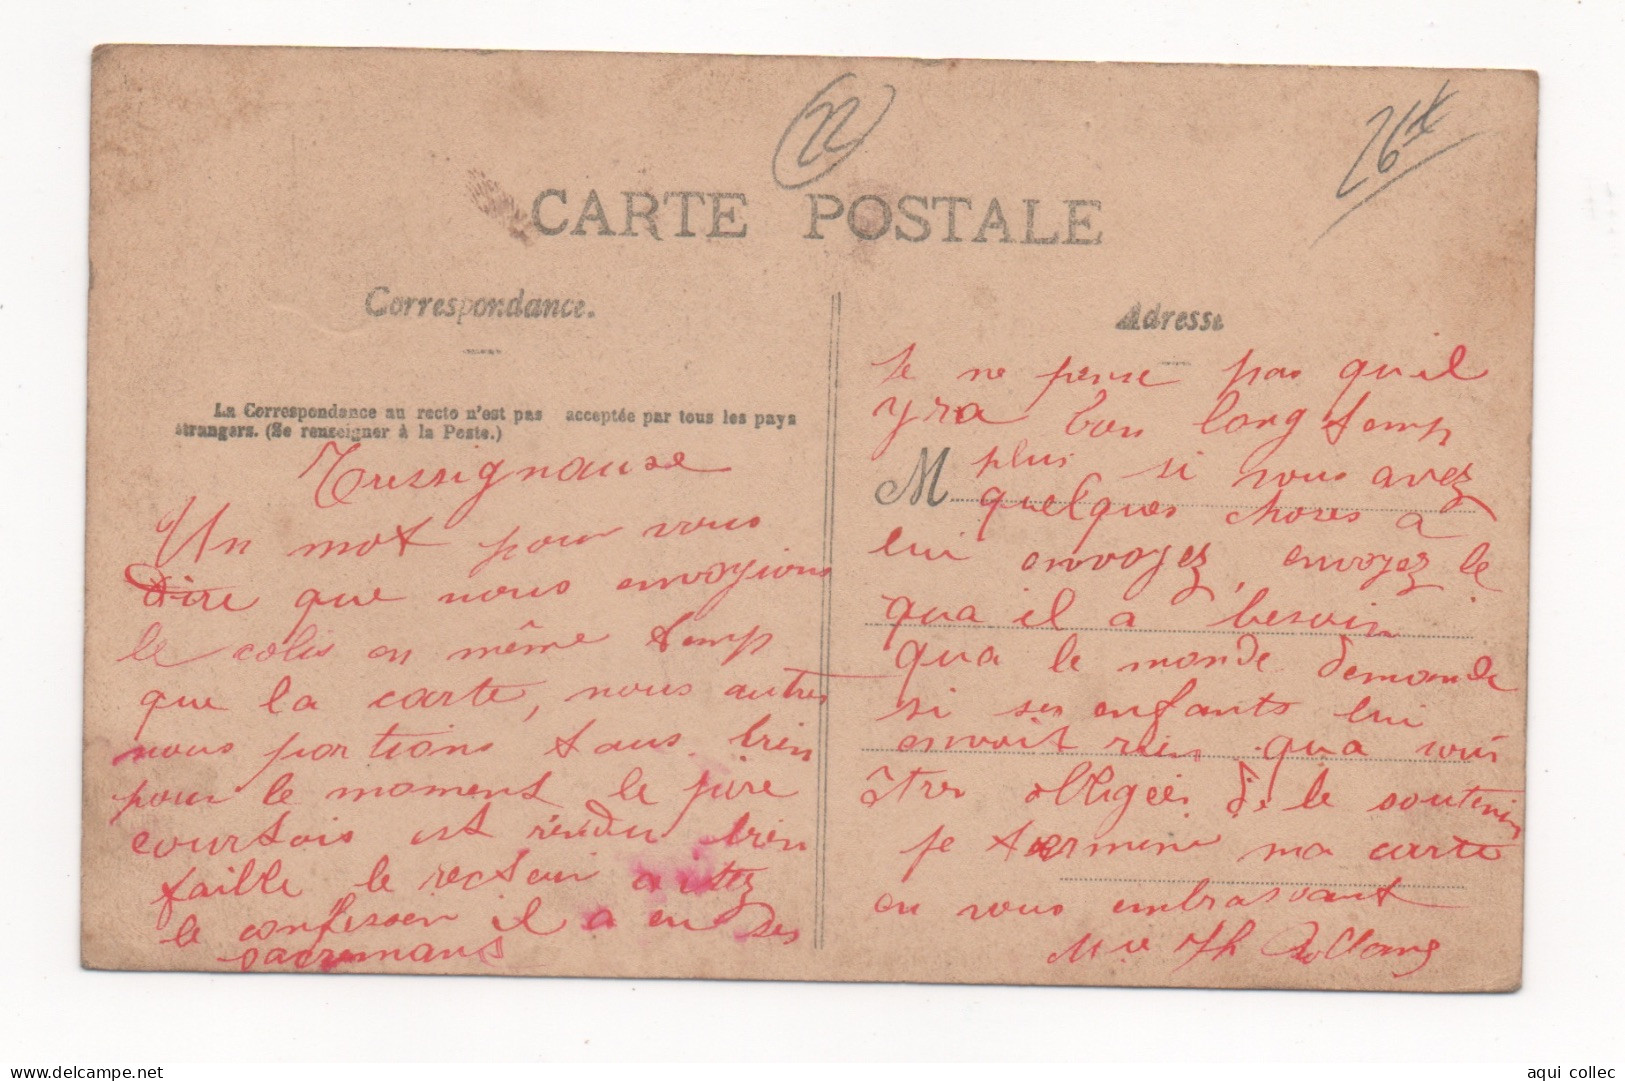 22
26
CARTE POSTALE
Correspondance.
Adresse
La Correspondance au recto n'est pas acceptée par tous les pays
étrangers. (Se renseigner à la Poste.)
Tressignause
Un mot pour vous
dire que nous envoyions
le colis en même temp
que la carte, nous autres
nous portions tous bien
pour le moment le père
courtois est rendu bien
faille le recteur
le confesser il a eu ses
sacremans
Je ne pense pas qu'il
yra bon longtemp
M plus si vous avez
quelques choses à
lui envoyez, envoyez le
qua il a besoin
qua le monde demande
si ses enfants lui
envoit rien qua vous
êtres obligées de le soutenir
je termine ma carte
en vous embrassant
M. Th Rolland
aqui collec